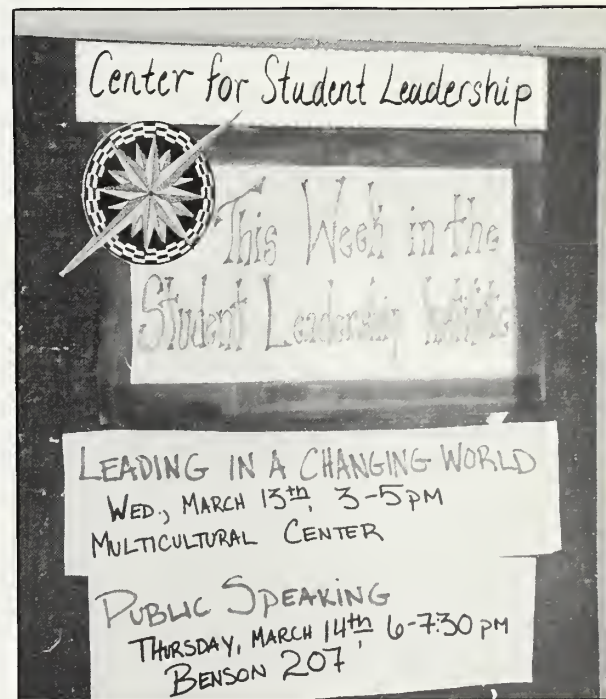 Center for Student Leadership
This Week in the
Student Leadership Institute
LEADING IN A CHANGING WORLD
WED., MARCH 13th, 3-5 PM
MULTICULTURAL CENTER
PUBLIC SPEAKING
THURSDAY, MARCH 14th, 6-7:30 PM
BENSON 207